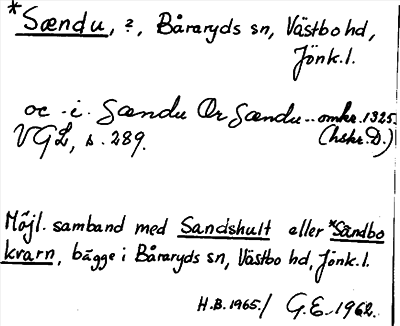 *Sændu, ?, Båraryds sn, Västbo hd,
Jönk. l.
oc . i . Sændu Or Sændu -- omkr. 1325.
VGL, s. 289. (hskr. D.)
Möjl. samband med Sandshult eller *Sandbo
kvarn, bägge i Båraryds sn, Västbo hd, Jönk. l.
H.B. 1965./ G.E. 1962.